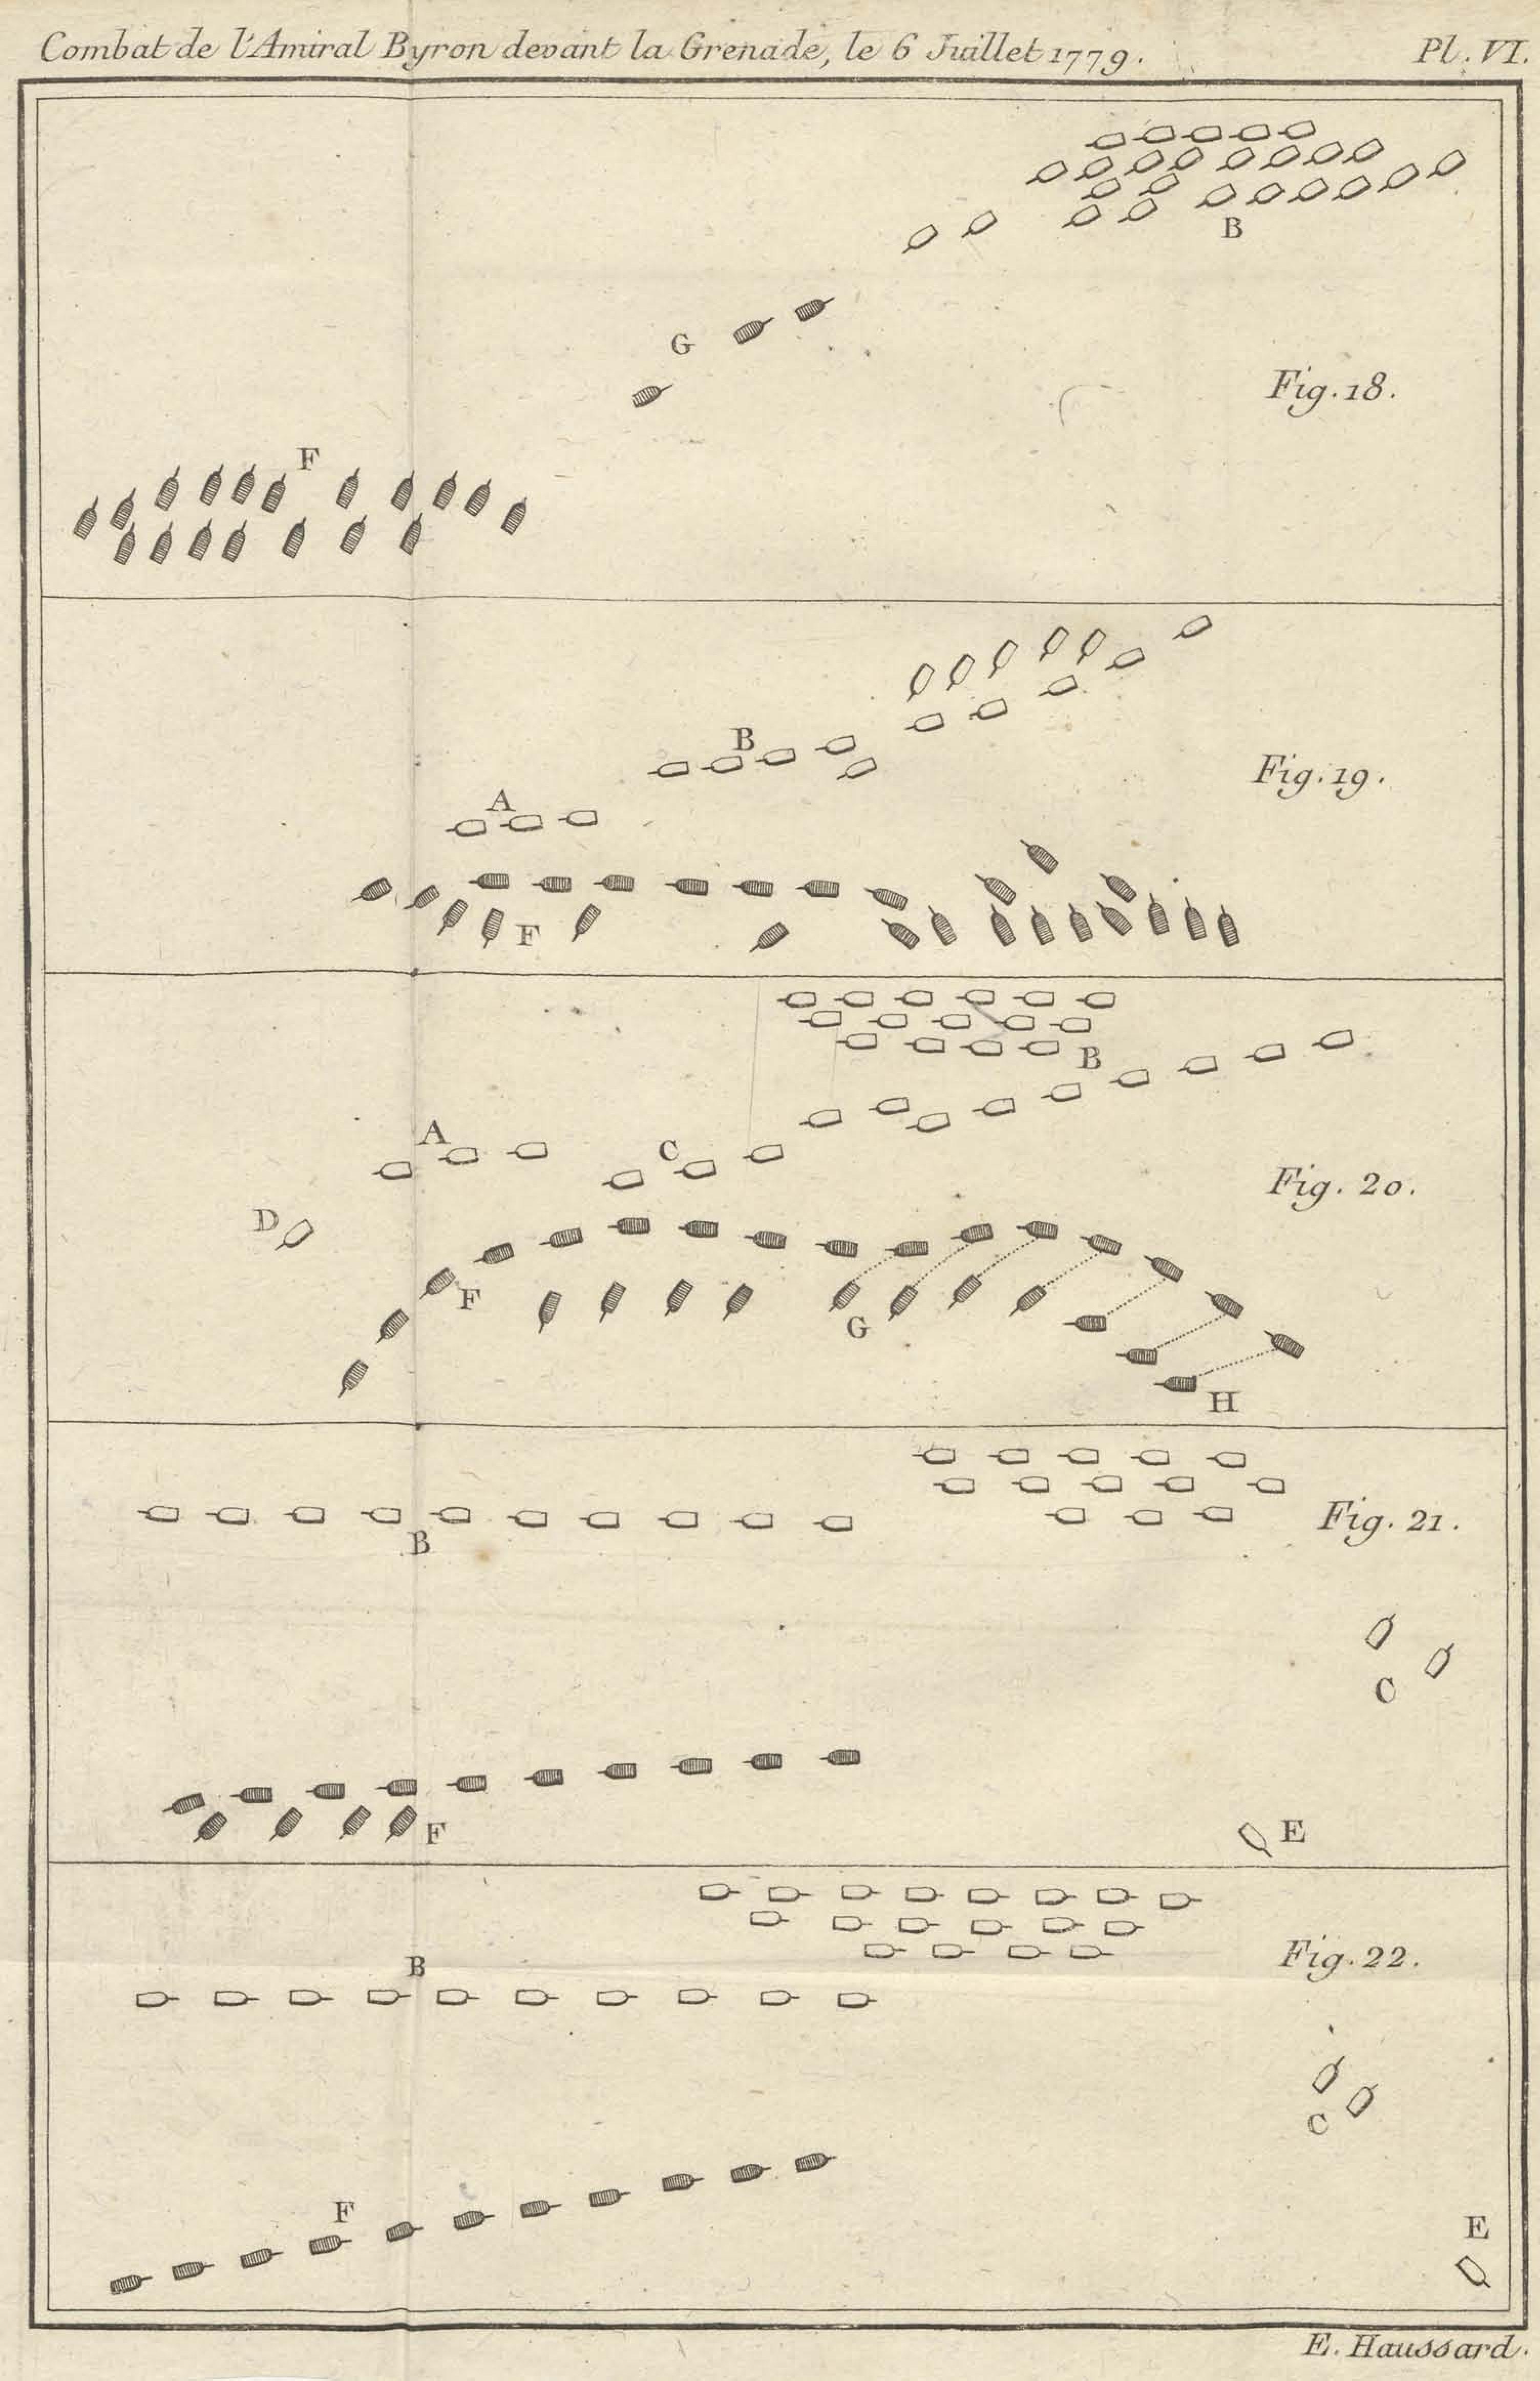 Combat de l'Amiral Byron devant la Grenade, le 6 Juillet 1779. Pl. VI.
B
G
Fig. 18.
F
B
Fig. 19.
A
F
B
A
C
Fig. 20.
D
F
G
H
Fig. 21.
B
C
F
E
B
Fig. 22.
C
F
E
E. Haussard.